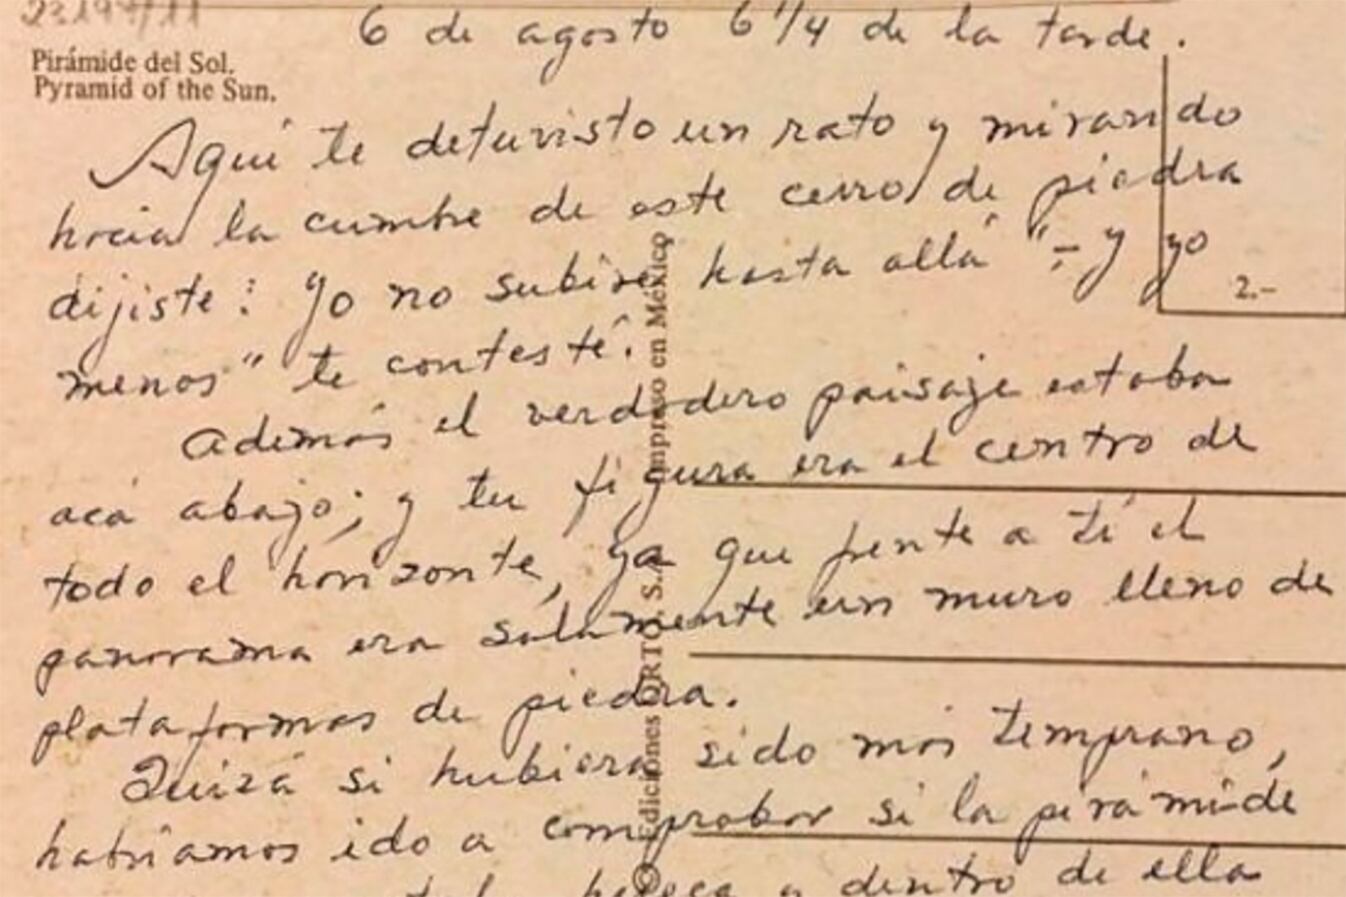 6 de agosto 6 1/4 de la tarde.
Pirámide del Sol.
Pyramid of the Sun.
Aquí te detuvisto un rato y mirando
hacia la cumbre de este cerro de piedra
dijiste: Yo no subiré hasta allá" - y yo
menos" te contesté.
2.-
Además el verdadero paisaje estaba
acá abajo; y tu figura era el centro de
todo el horizonte, ya que frente a tí el
panorama era solamente un muro lleno de
plataformas de piedra.
Quizá si hubiera sido mas temprano,
habríamos ido a comprobar si la pirámide
y dentro de ella
© Ediciones ORTO, S.A. Impreso en México